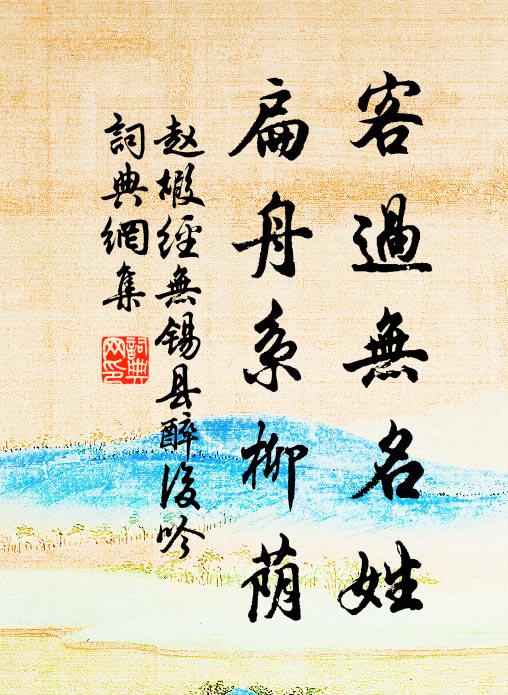 客過無名姓
扁舟系柳荫
赵嘏經無锡县醉後吟
詞典網集
詞典网印